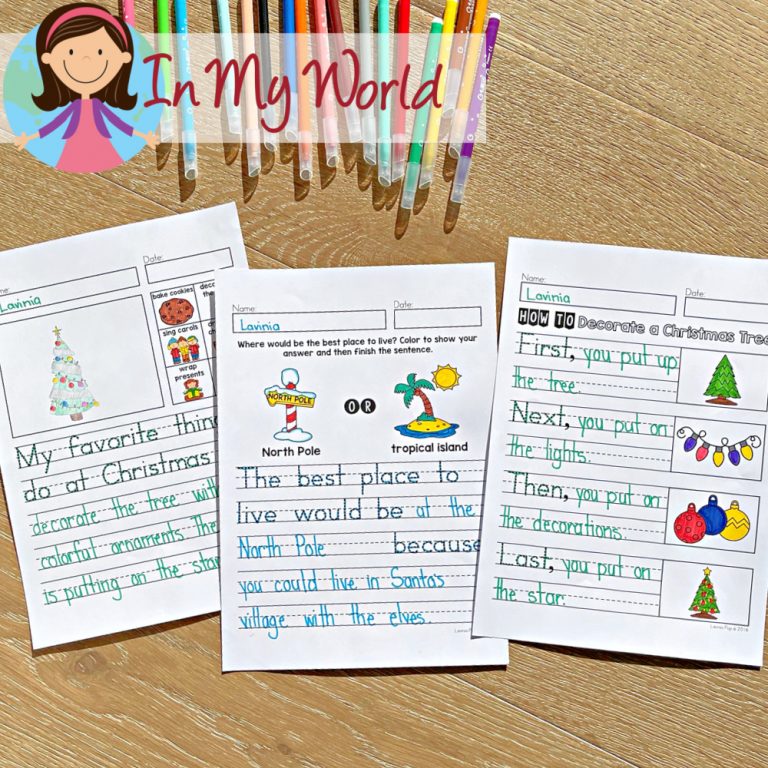 In My World
Name:
Date:
Lavinia
bake cookies
sing carols
wrap
presents
My favorite thing
do at Christmas
decorate the tree with
colorful ornaments. The
is putting on the star
Name:
Date:
Lavinia
Where would be the best place to live? Color to show your
answer and then finish the sentence.
NORTH POLE
OR
North Pole
tropical island
The best place to
live would be at the
North Pole because
you could live in Santa's
village with the elves.
Name:
Date:
Lavinia
HOW TO Decorate a Christmas Tree
First, you put up
the tree.
Next, you put on
the lights.
Then, you put on
the decorations.
Last, you put on
the star.
Lavinia Pop © 2018